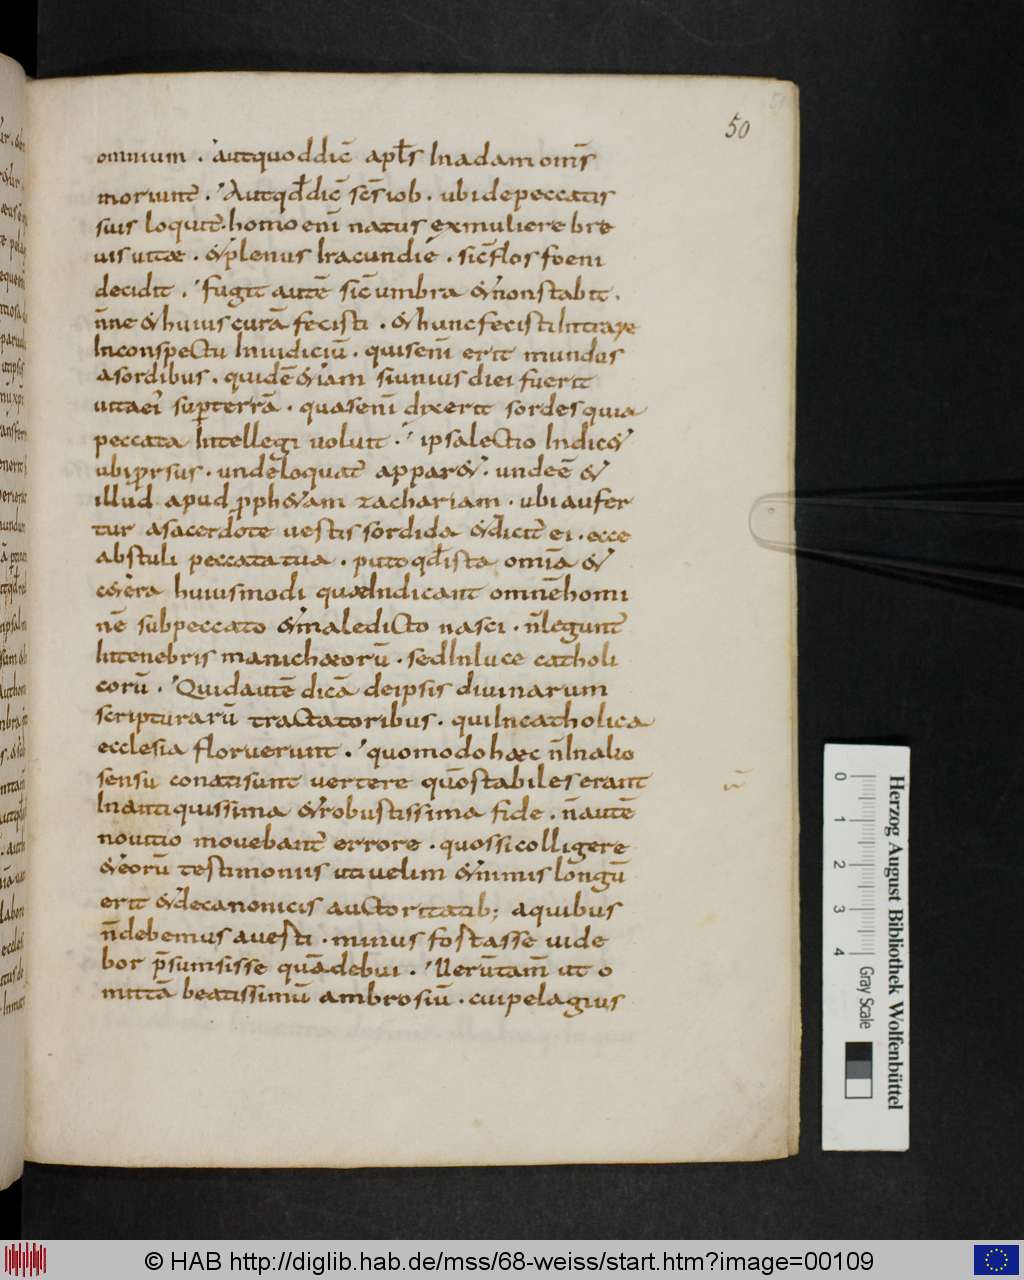 50
omnium . autquoddic̄ apłs Inadam oīns
moriunt̄ . Autqđdic̄ sc̄s iob . ubi depeccatis
suis loquit̄ . homo enī natus exmuliere bre
uis uitae . &plenus Iracundie . sic̄ flos foeni
decidit . fugit autē sic̄ umbra &nonstabit .
n̄ne &huius curā fecisti . &huncfecisti Intrare
Inconspectu Inuidiciū . quisenī erit mundus
asordibus . quidē &iam siunius diei fuerit
uitaeī sup̄terrā . quasenī dixerit sordes quia
peccata Intellegi uoluit . ipsalectio Indic&
ubip̄rsus . undeloquat̄ appar& . undeē &
illud apud pph&am zachariam . ubi aufer
tur asacerdote uestis sordida &dicit̄ ei . ecce
abstuli peccata tua . putoqđista omīa &
c&era huiusmodi quaeIndicant omnēhomi
nē subpeccato &maledicto nasci . n̄legunt̄
Intenebris manichaeorū . sedInluce catholi
corū . Quidautē dicā deipsis diuinarum
scripturarū tractatoribus . quiIncatholica
ecclesia floruerunt . quomodo haec n̄Inalio
sensu conatisunt uertere qūostabiles erant
Inantiquissima &robustissima fide . n̄autē
nouitio mouebant̄ errore . quossicolligere
&eorū testimoniis utiuelim &nimis longū
erit &decanonicis auctoritatib; aquibus
n̄debemus auesti . minus fostasse uide
bor p̄sumsisse quādebui . Uerūtam̄ ut o
mittā beatissimū ambrosiū . cuipelagius
0 1 2 3 4
Herzog August Bibliothek Wolfenbüttel
Gray Scale
© HAB http://diglib.hab.de/mss/68-weiss/start.htm?image=00109